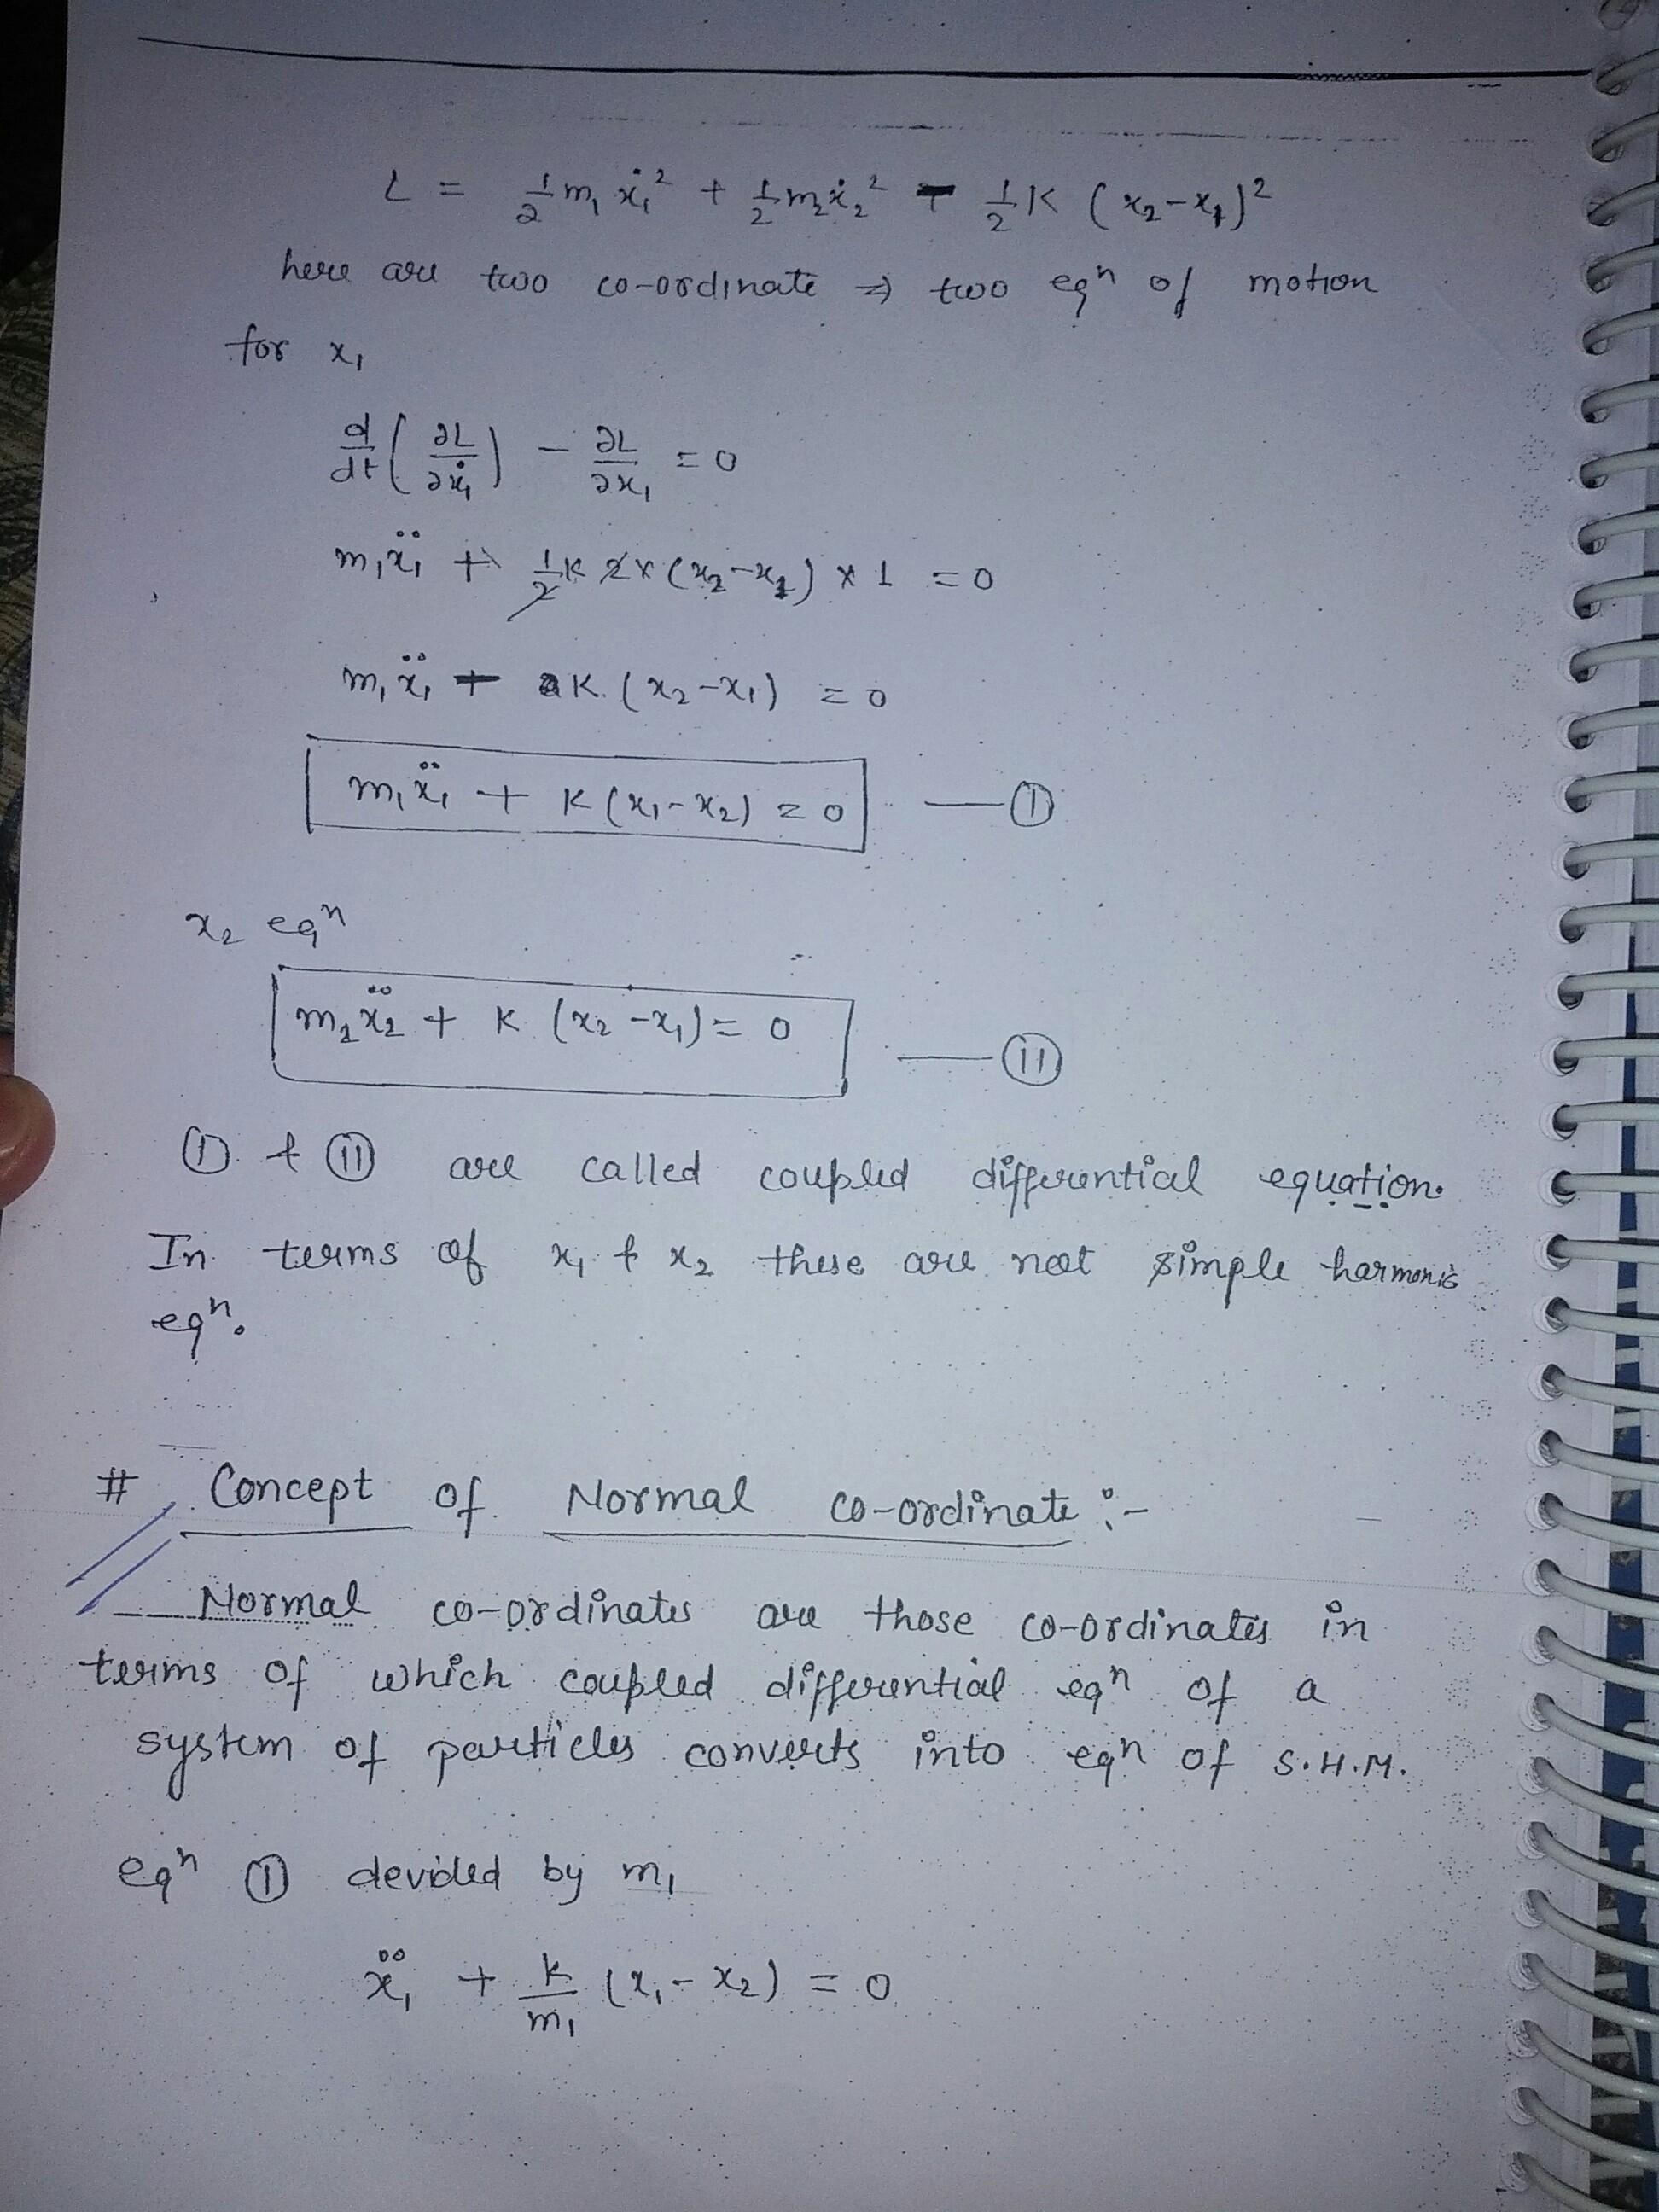 L = ½ m₁ ẋ₁² + ½ m₂ ẋ₂² - ½ K (x₂-x₁)²
here are two co-ordinate ⇒ two eqⁿ of motion
for x₁
d/dt (∂L/∂ẋ₁) - ∂L/∂x₁ = 0
m₁ẍ₁ + ½ K 2x (x₂-x₁) x 1 = 0
m₁ẍ₁ + K (x₂-x₁) = 0
m₁ẍ₁ + K (x₁-x₂) = 0 — (I)
x₂ eqⁿ
m₂ẍ₂ + K (x₂-x₁) = 0 — (II)
(I) & (II) are called coupled differential equation.
In terms of x₁ & x₂ these are not simple harmonic
eqⁿ.
# Concept of Normal co-ordinate :-
Normal co-ordinates are those co-ordinates in
terms of which coupled differential eqⁿ of a
system of particles converts into eqⁿ of S.H.M.
eqⁿ (I) devided by m₁
ẍ₁ + K/m₁ (x₁ - x₂) = 0